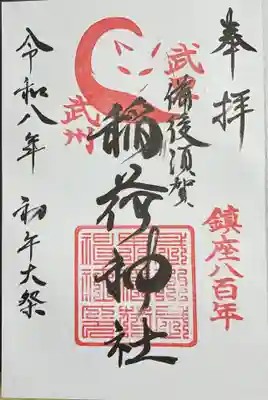 奉拝
鎮座八百年
備後須賀
稲荷神社
武州
令和八年 初午大祭